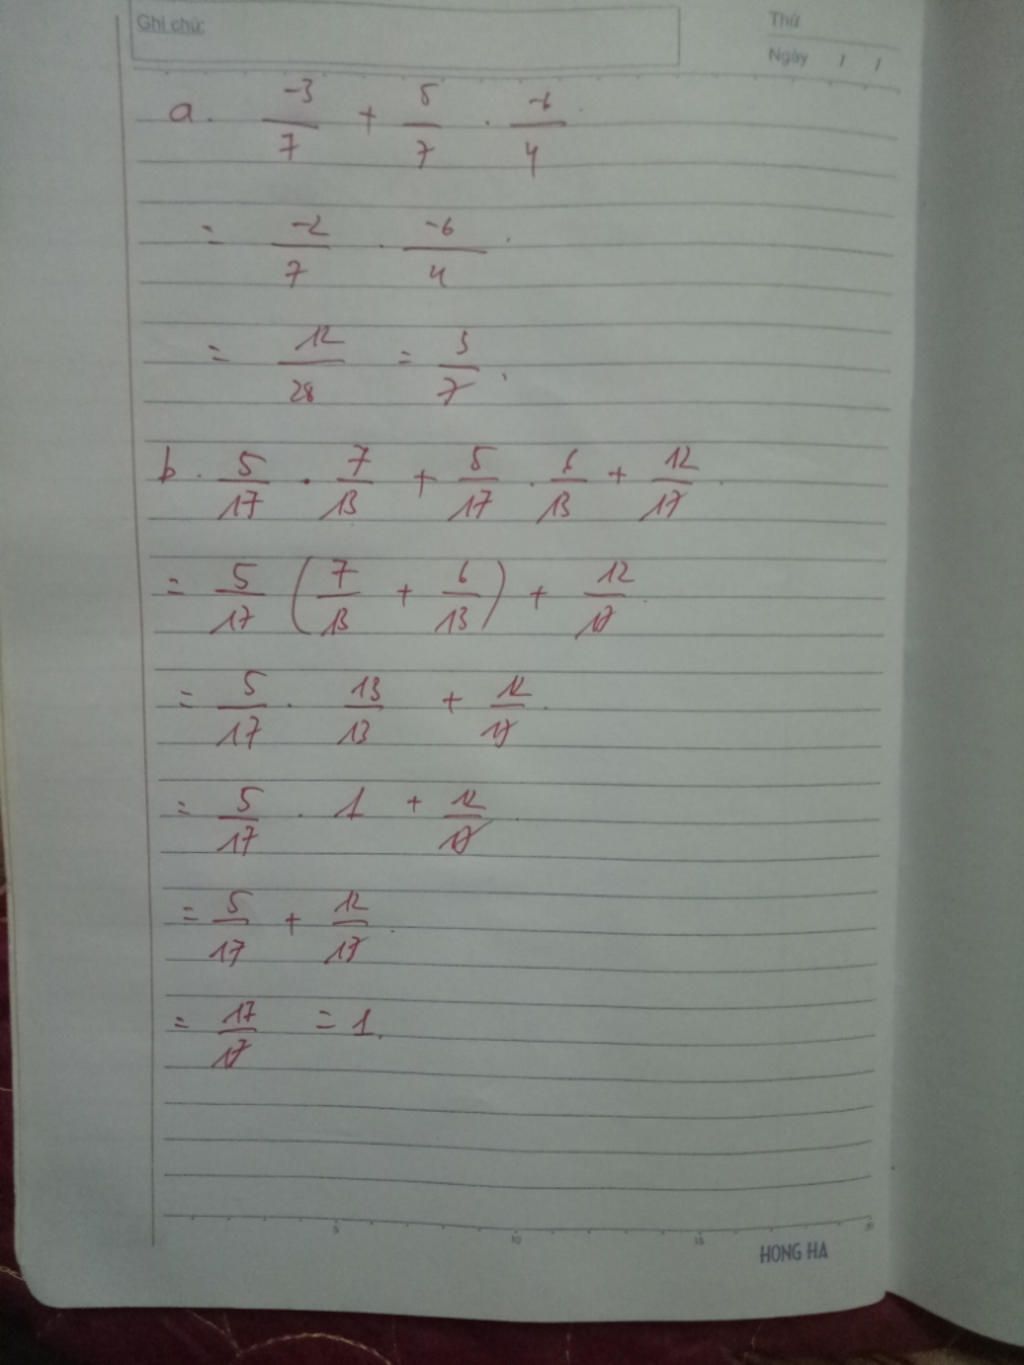 Ghi chú:
Thứ
Ngày / /
a. -3/7 + 5/7 . -6/4
= -2/7 . -6/4
= 12/28 = 3/7.
b. 5/17 . 7/13 + 5/17 . 6/13 + 12/17
= 5/17 (7/13 + 6/13) + 12/17
= 5/17 . 13/13 + 12/17
= 5/17 . 1 + 12/17
= 5/17 + 12/17
= 17/17 = 1.
5 10 15
HONG HA